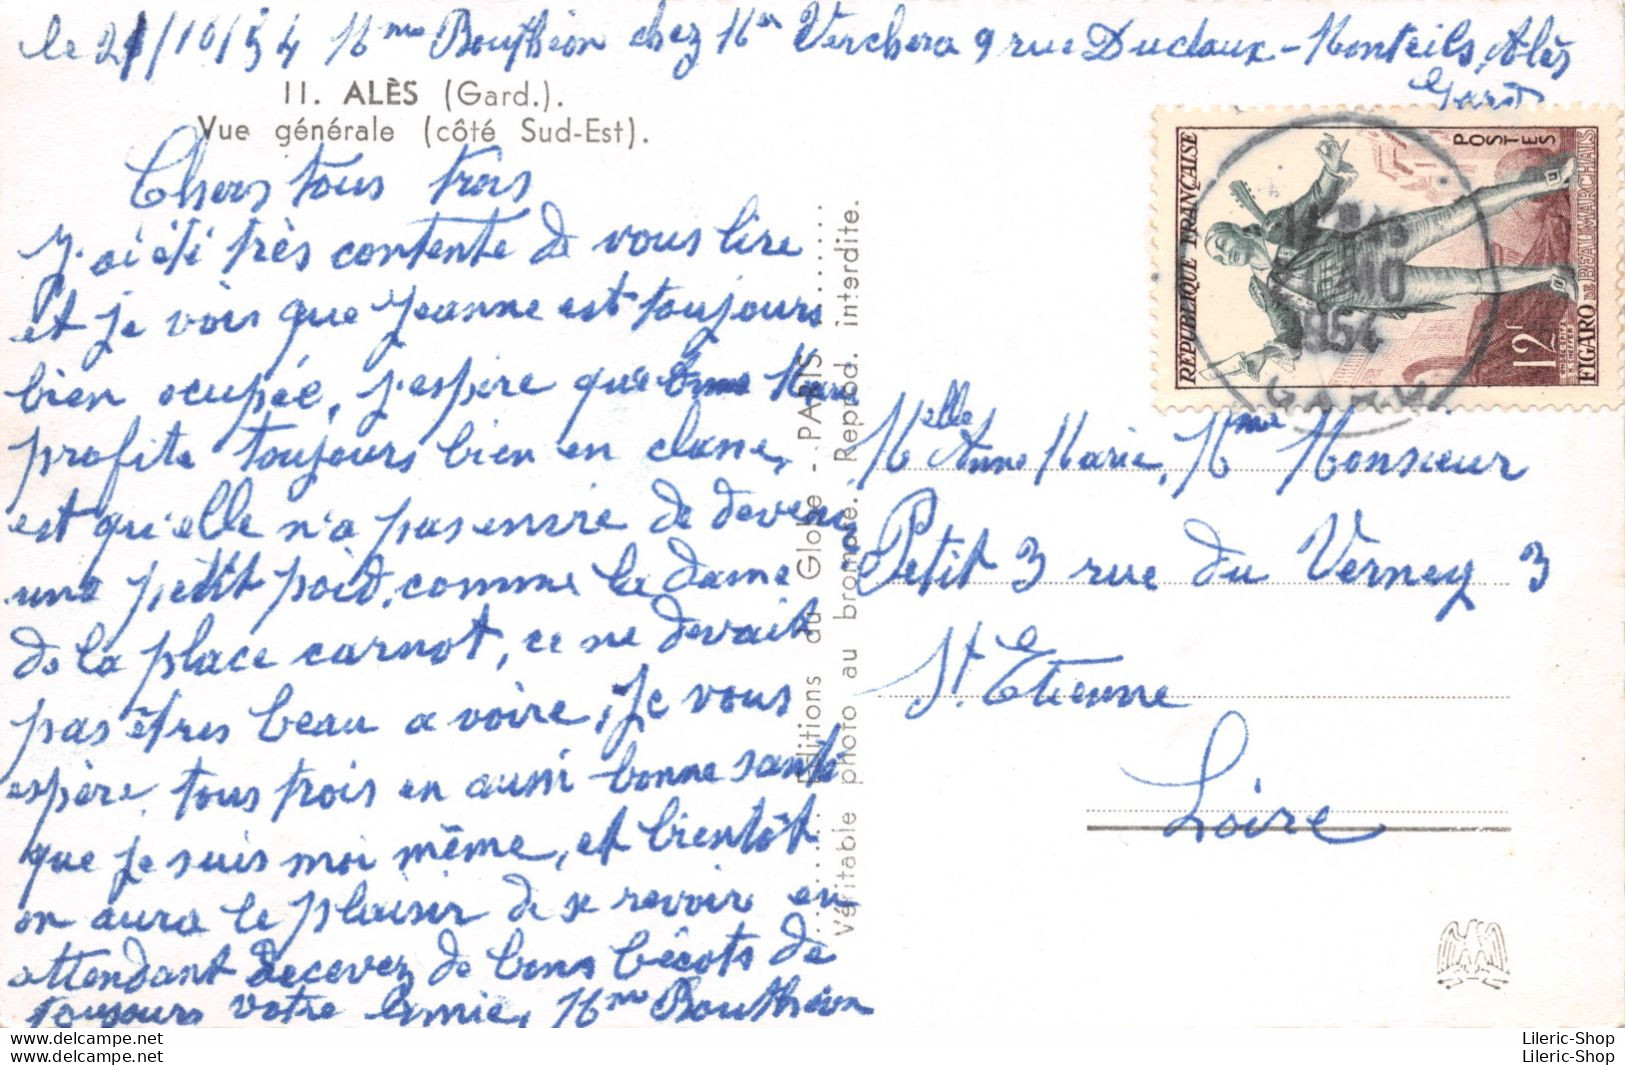 le 21/10/54 Mme Bouthéon chez Mer Verchera 9 rue Duclaux - Monteils, Alès
Gard
11. ALÈS (Gard.).
Vue générale (côté Sud-Est).
Chers tous trois
J'ai été très contente de vous lire
et je vois que Jeanne est toujours
bien ocupée, j'espère que Marie
profite toujours bien en clane,
est qu'elle n'a pas envie de devenir
une petit poid, comme la dame
de la place carnot, ce ne devait
pas êtres beau a voire, Je vous
espère tous trois en aussi bonne santé
que je suis moi même, et bientôt
on aura le plaisir de se revoir en
attendant recevez de bons bécots de
toujours votre amie, Mme Bouthéon
Editions du Globe - PARIS
Véritable photo au bromure. Reprod. interdite.
REPUBLIQUE FRANÇAISE
POSTES
12F
FIGARO DE BEAUMARCHAIS
1954
GARD
Melle Anne Marie, Mme Monsieur
Petit 3 rue du Verney 3
St. Etienne
Loire
Lileric-Shop
Lileric-Shop
delcampe.net
delcampe.net